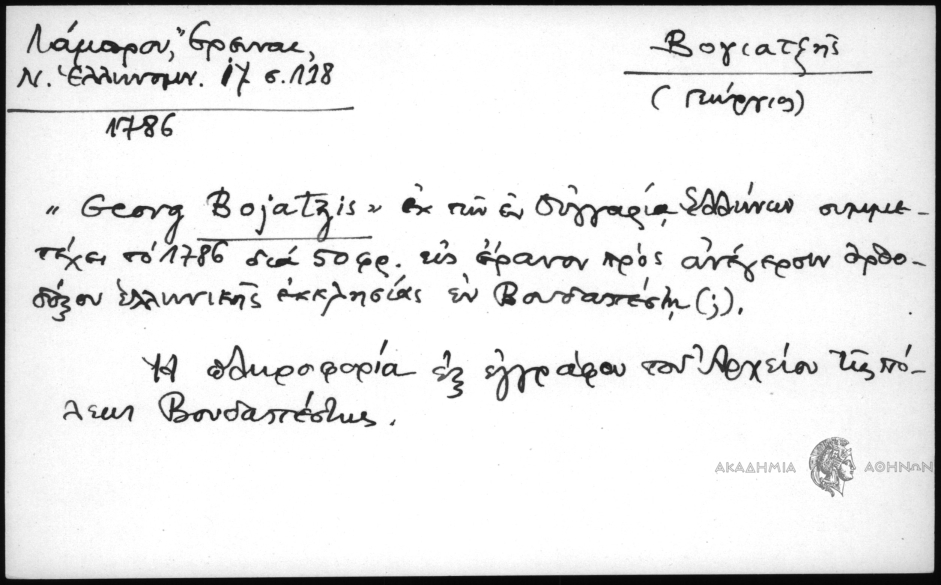 Λάμπρου, Ἔρευναι,
Ν. Ἑλληνομν. 17 σ.118
1786
Βογιατζῆς
(Γεώργιος)
"Georg Bojatzis" ἐκ τῶν ἐν Οὑγγαρίᾳ Ἑλλήνων συμμε-
τέχει τό 1786 διά 50 φρ. εἰς ἔρανον πρός ἀνέγερσιν ὀρθο-
δόξου ἑλληνικῆς ἐκκλησίας ἐν Βουδαπέστῃ (;).
Ἡ πληροφορία ἐξ ἐγγράφου τοῦ Ἀρχείου τῆς πό-
λεως Βουδαπέστης.
ΑΚΑΔΗΜΙΑ ΑΘΗΝΩΝ